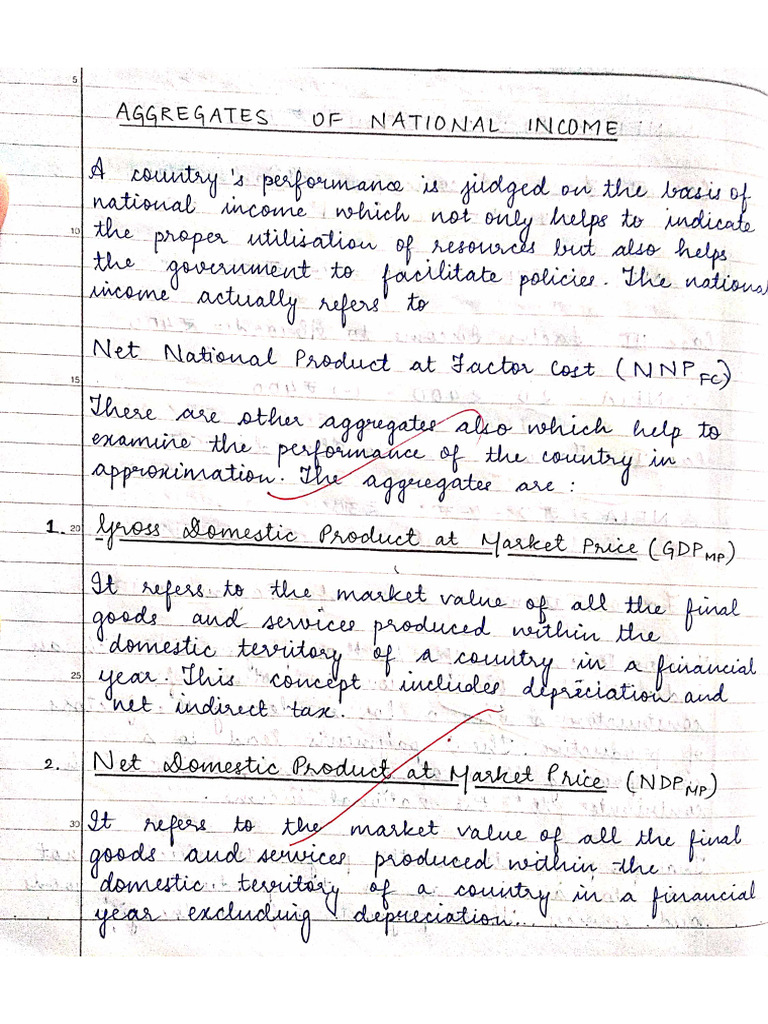 5
AGGREGATES OF NATIONAL INCOME
A country's performance is judged on the basis of
national income which not only helps to indicate
10 the proper utilisation of resources but also helps
the government to facilitate policies. The national
income actually refers to
Net National Product at Factor Cost (NNP FC)
15
There are other aggregates also which help to
examine the performance of the country in
approximation. The aggregates are :
1. 20 Gross Domestic Product at Market Price (GDP MP)
It refers to the market value of all the final
goods and services produced within the
domestic territory of a country in a financial
25 year. This concept includes depreciation and
net indirect tax.
2. Net Domestic Product at Market Price (NDP MP)
30 It refers to the market value of all the final
goods and services produced within the
domestic territory of a country in a financial
year excluding depreciation.